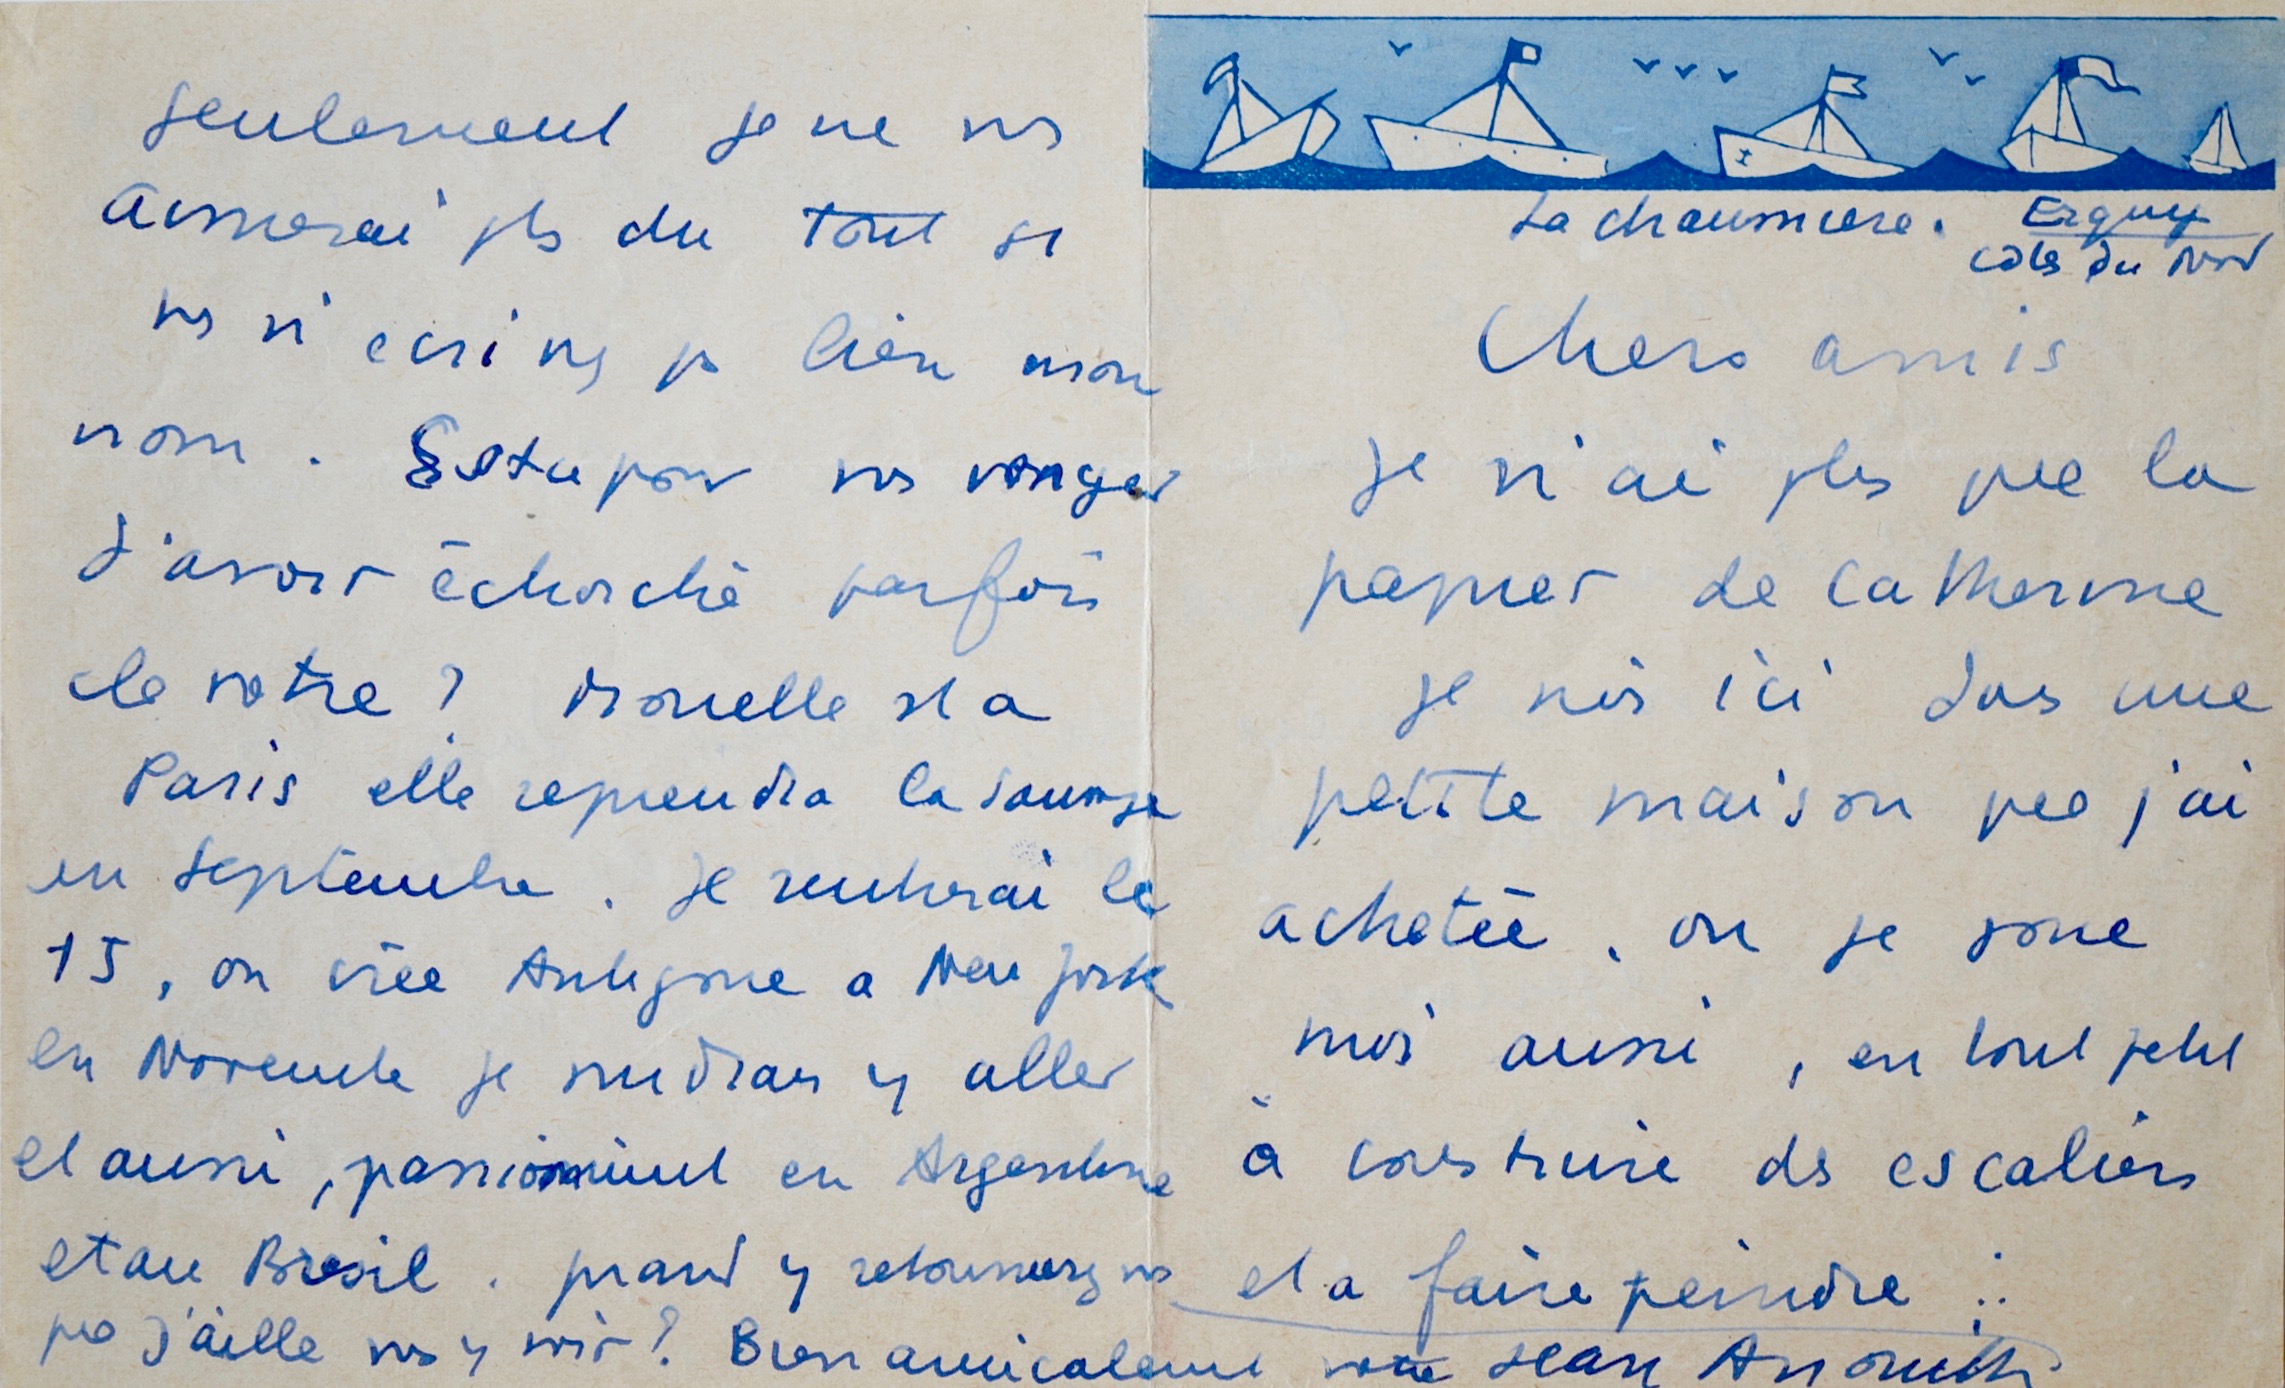 La chaumiere. Erquy
Cotes du Nord
Chers amis
je n'ai pls que le
papier de Catherine
je suis ici dans une
petite maison que j'ai
achetée, ou je joue
moi aussi, en tout petit
à construire des escaliers
et a faire peindre
Seulement je ne vs
aimerai pls du tout si
vs n'ecrivez ps bien mon
nom. Est ce pour vs venger
d'avoir échorché parfois
le votre ? Monelle est a
Paris elle reprendra la sauvage
en septembre. je rentrerai le
15, on crée Antigone a New York
en Novembre je voudrais y aller
et aussi, passionément en Argentine
et au Bresil. quand y retournerez vs
que j'aille vs y voir ? Bien amicalement votre Jean Anouilh